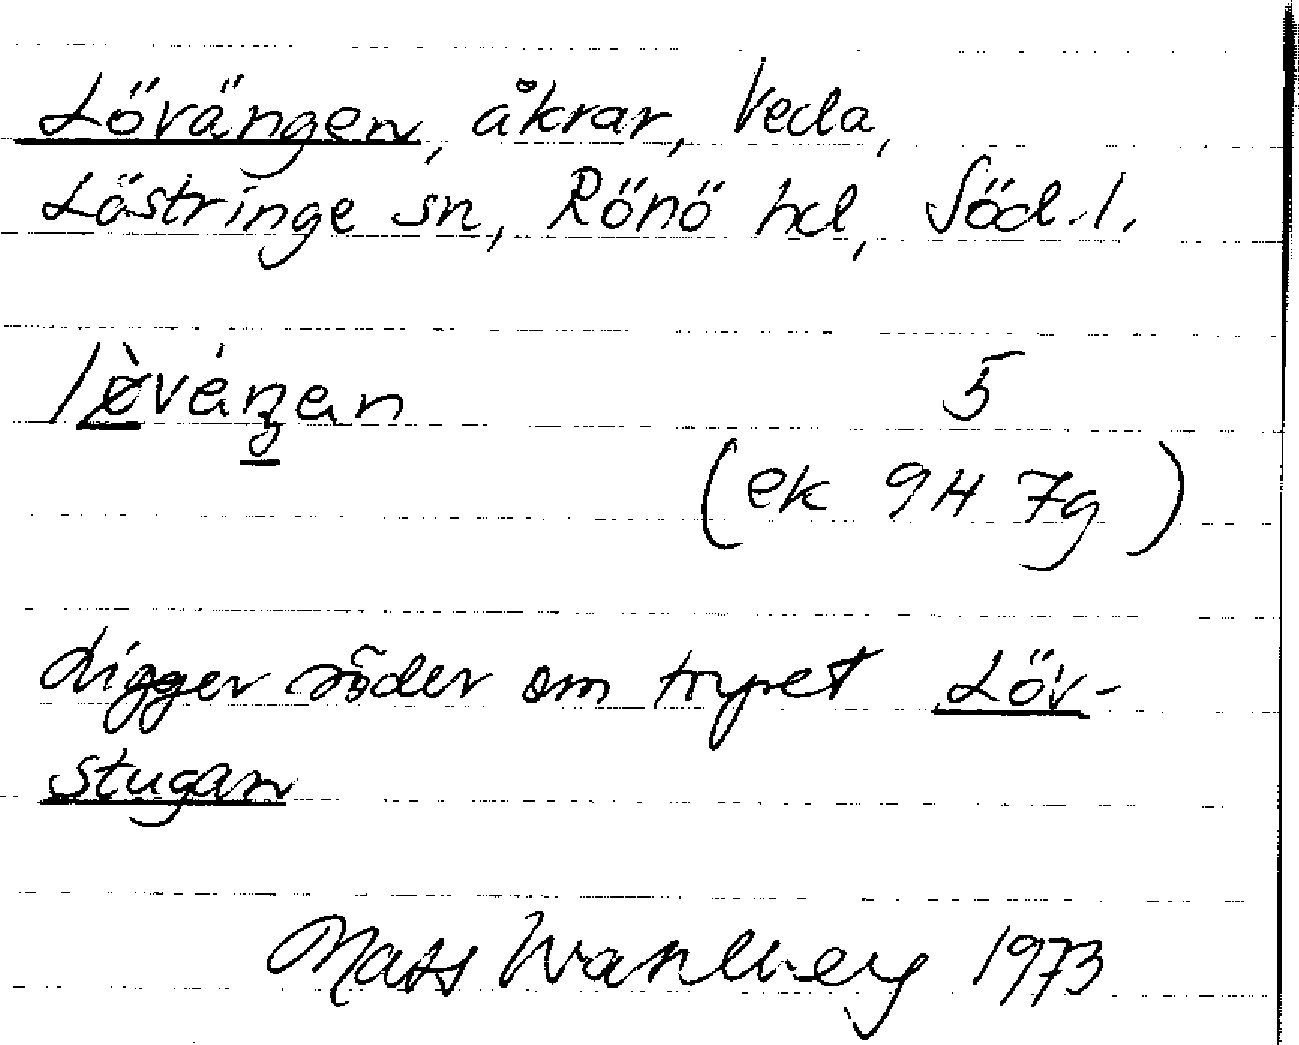 Lövängen, åkrar, Veda,
Lästringe sn, Rönö hd, Söd.l.
5
(ek 9H 7g)
Ligger söder om torpet Löv-
stugan
Mats Wahlberg 1973